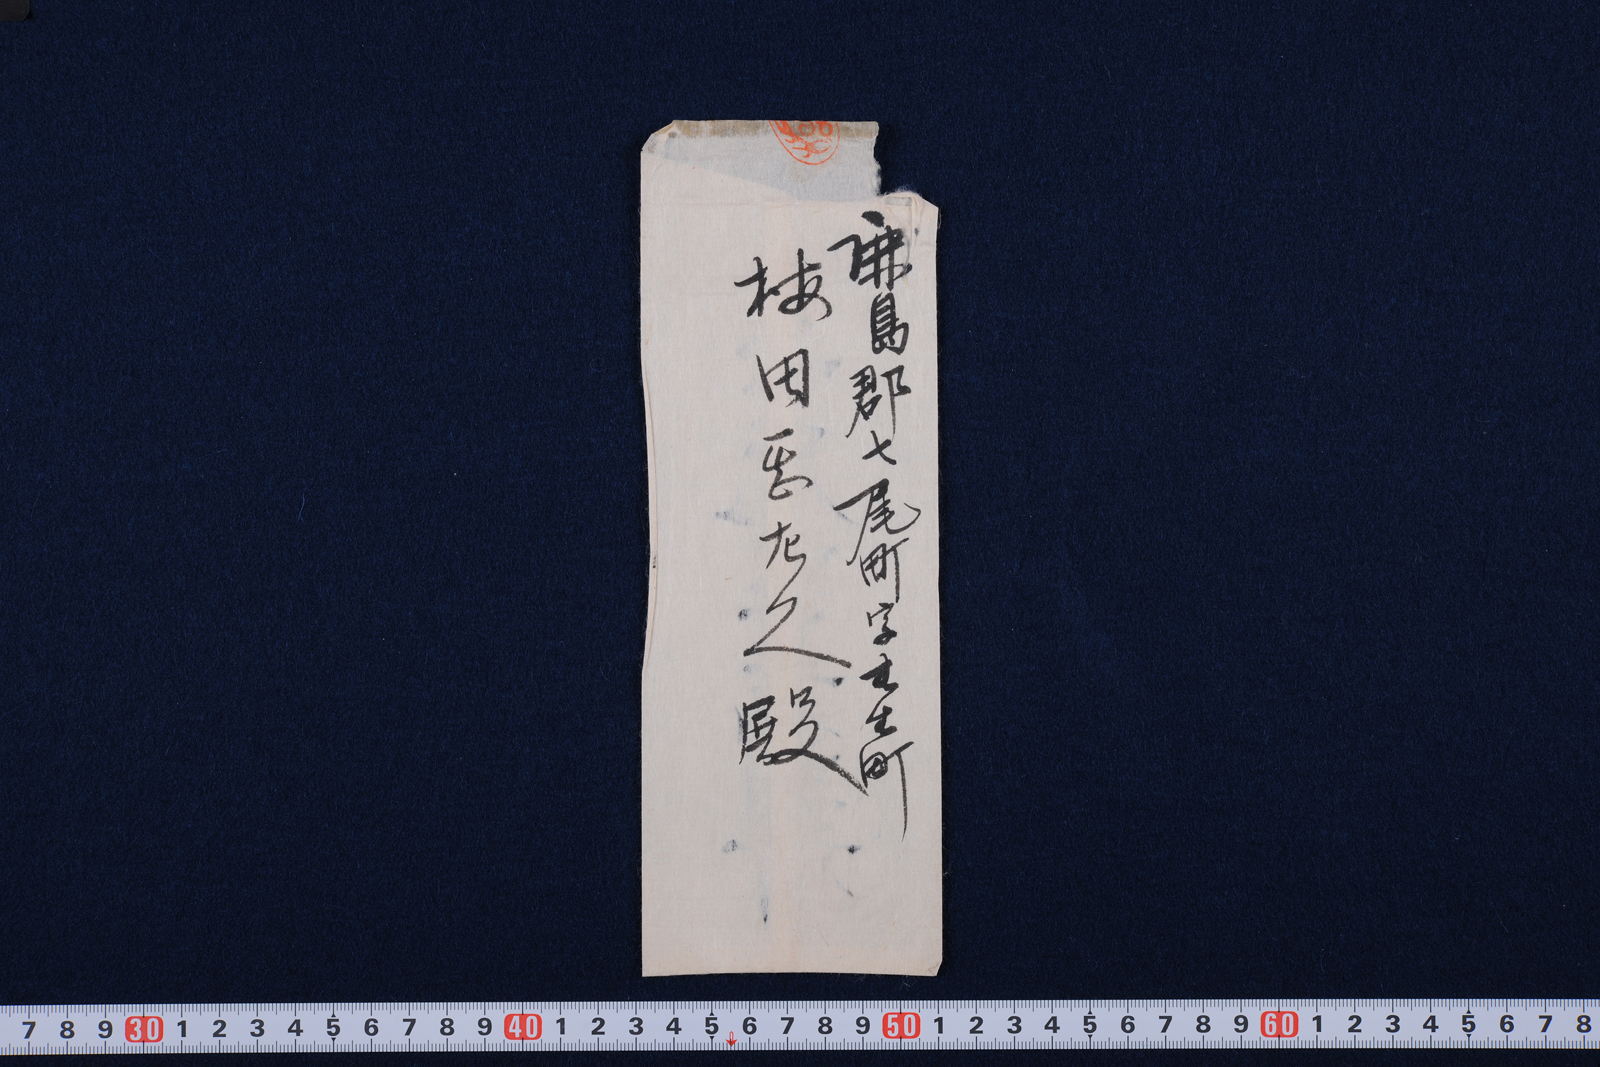 鹿島郡七尾町字生町
梅田甚左久殿
7 8 9 30 1 2 3 4 5 6 7 8 9 40 1 2 3 4 5 6 7 8 9 50 1 2 3 4 5 6 7 8 9 60 1 2 3 4 5 6 7 8